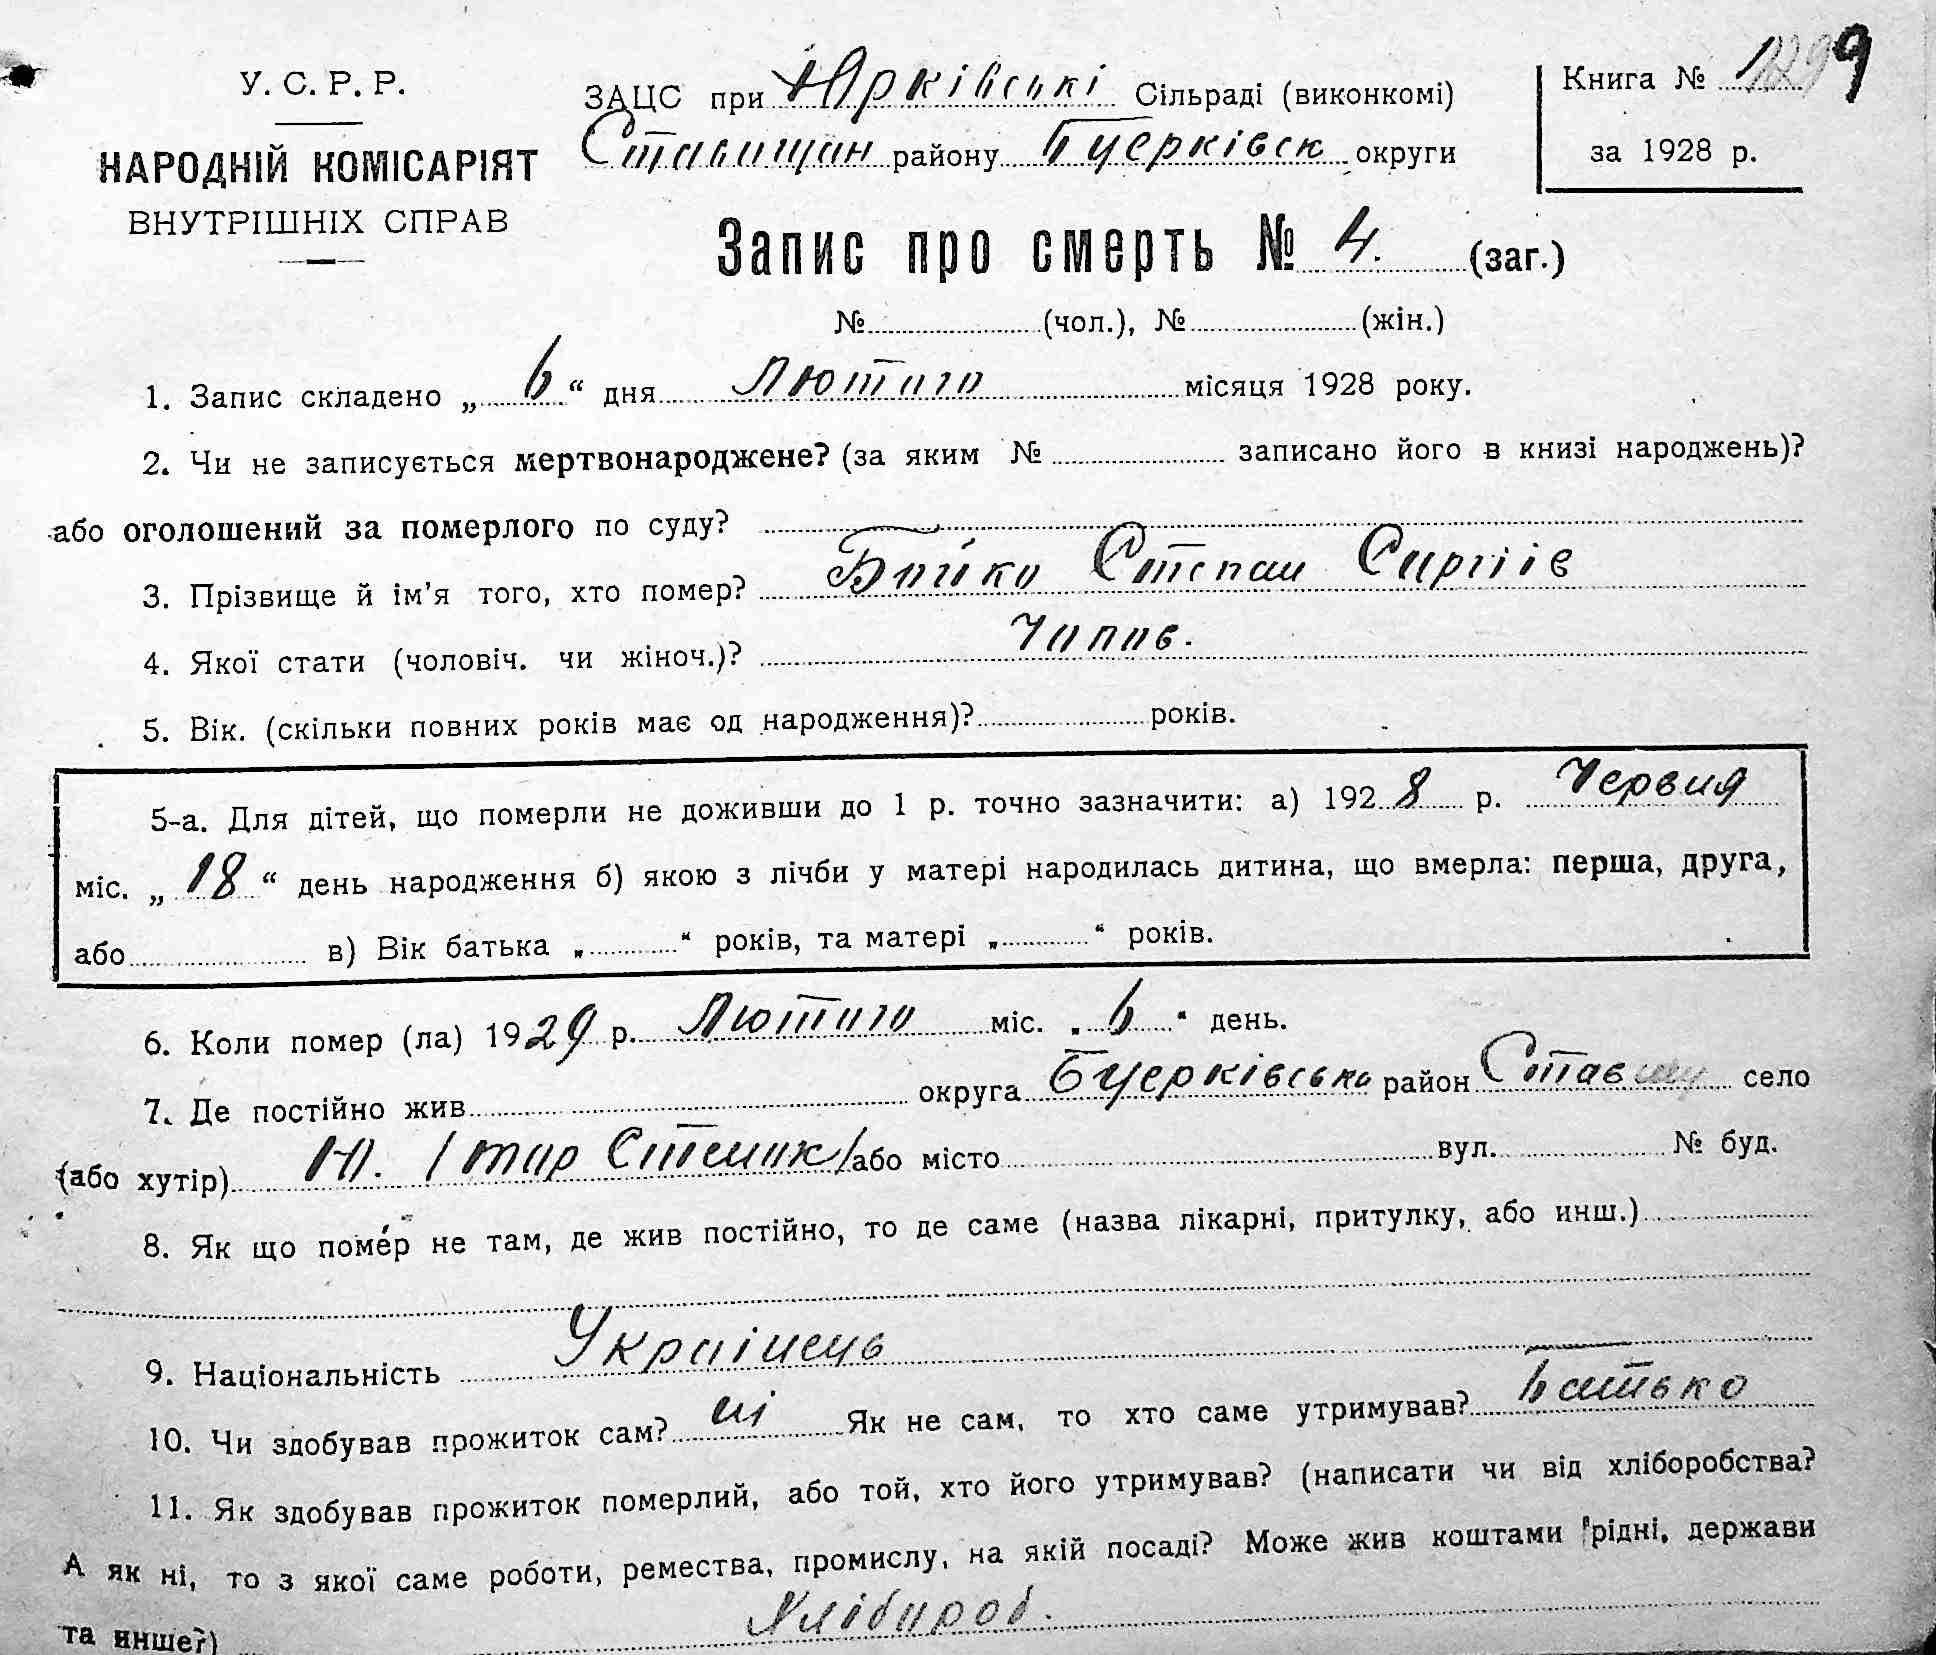 У. С. Р. Р.
НАРОДНІЙ КОМІСАРІЯТ
ВНУТРІШНІХ СПРАВ
ЗАЦС при Юрківські Сільраді (виконкомі)
Ставищан району Бцерківск округи
Книга № 9
за 1928 р.
Запис про смерть № 4. (заг.)
№ (чол.), № (жін.)
1. Запис складено „ 6 “ дня Лютого місяця 1928 року.
2. Чи не записується мертвонароджене? (за яким № записано його в книзі народжень)?
або оголошений за померлого по суду?
3. Прізвище й ім'я того, хто помер? Бойко Степан Сиргіів
4. Якої стати (чоловіч. чи жіноч.)? Чолов.
5. Вік. (скільки повних років має од народження)? років.
5-а. Для дітей, що померли не доживши до 1 р. точно зазначити: а) 1928 р. Червня
міс. „ 18 “ день народження б) якою з лічби у матері народилась дитина, що вмерла: перша, друга,
або в) Вік батька „ “ років, та матері „ “ років.
6. Коли помер (ла) 1929 р. Лютого міс. „ 6 “ день.
7. Де постійно жив округа Бцерківсько район Ставищ село
(або хутір) Ю. / або місто вул. № буд.
8. Як що помер не там, де жив постійно, то де саме (назва лікарні, притулку, або инш.)
9. Національність Украінець
10. Чи здобував прожиток сам? ні Як не сам, то хто саме утримував? Батько
11. Як здобував прожиток померлий, або той, хто його утримував? (написати чи від хліборобства?
А як ні, то з якої саме роботи, ремества, промислу, на якій посаді? Може жив коштами рідні, держави
та инше?) Хлібороб.